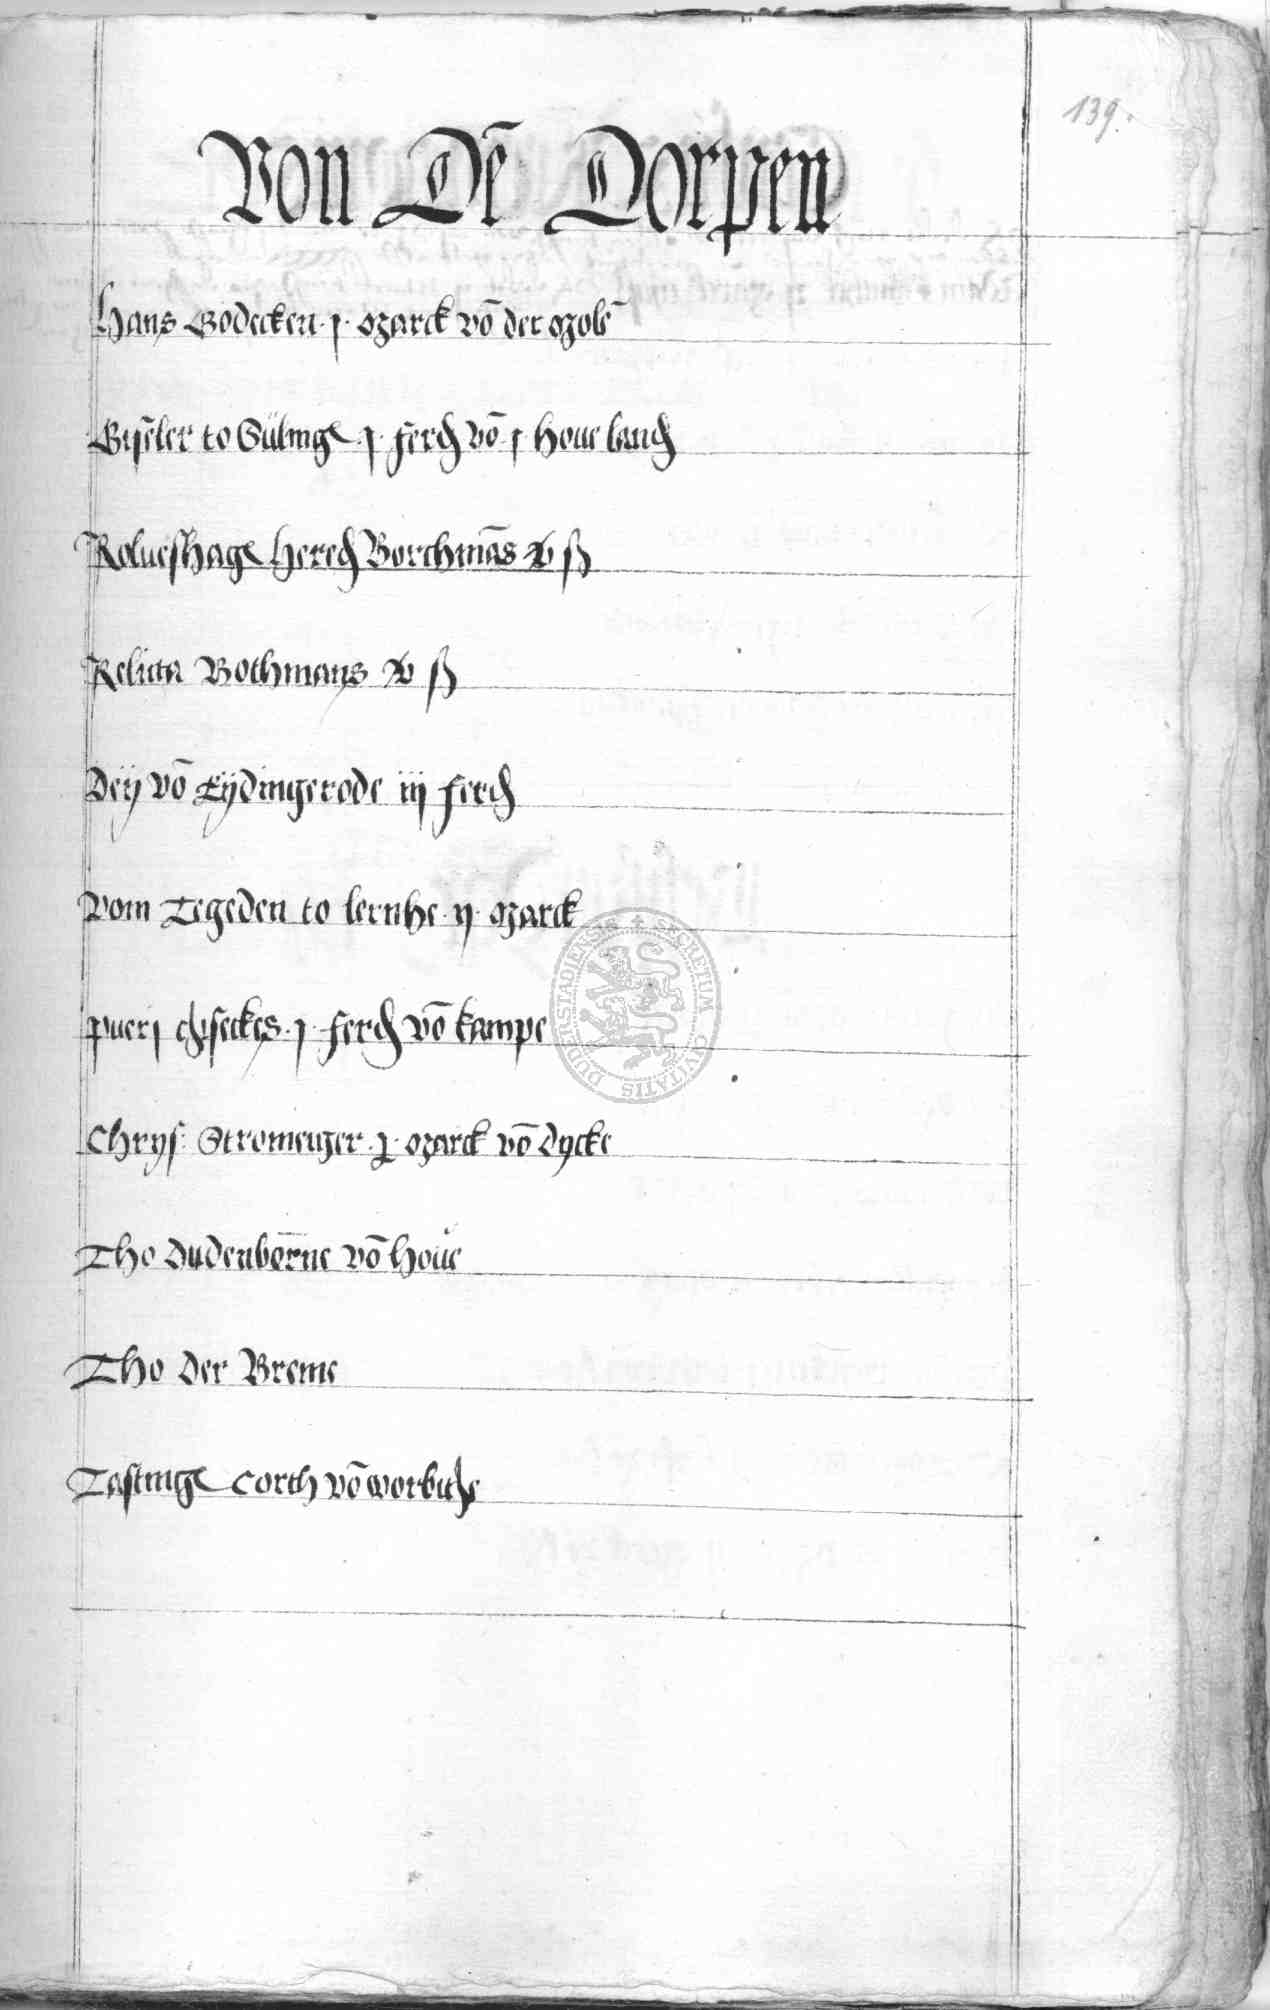 139.
Von Dē Dorpen
Hans Bodecken · j · marck vō der molē
Gyseler to Sülinge j ferd vō j houe landes
Rolueshagē Borchmās v ß
Relicta Bothmans v ß
Dey vō Eydingerode iij ferd
Vom Tegeden to lernhe · ij · marck
pueri · j · ferd vō kampe
Chrys: Stromeiger · j · marck vō dycke
Tho dudenborne vō houe
Tho der Breme
Tastinge Corth vō worbitze
SECRETUM CIVITATIS DUDERSTADIENSIS